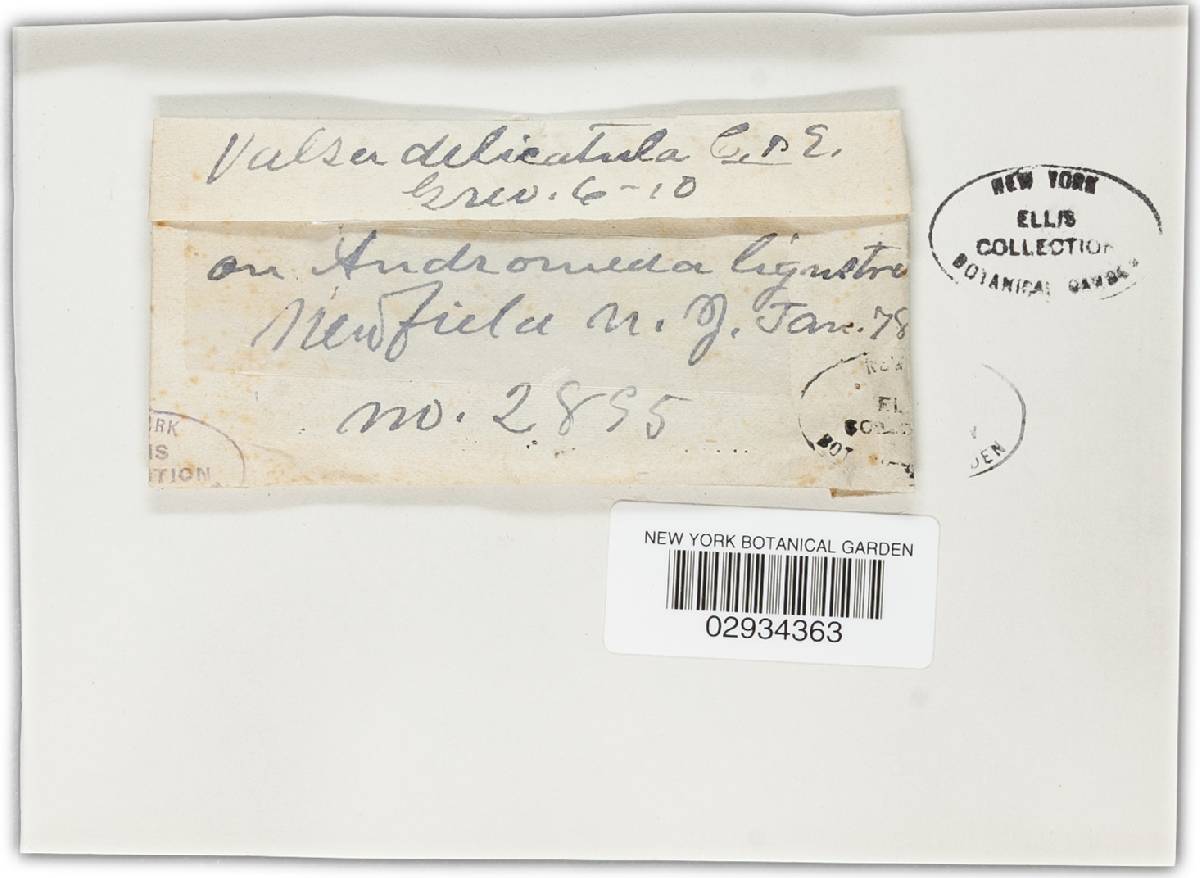 Valsa delicatula C. & E.
Grev. 6-10
on Andromeda ligustri
Newfield N. J. Jan. 78
no. 2895
NEW YORK
ELLIS
COLLECTION
BOTANICAL GARDEN
NEW
EL
BOT
DEN
RK
IS
TION
NEW YORK BOTANICAL GARDEN
02934363